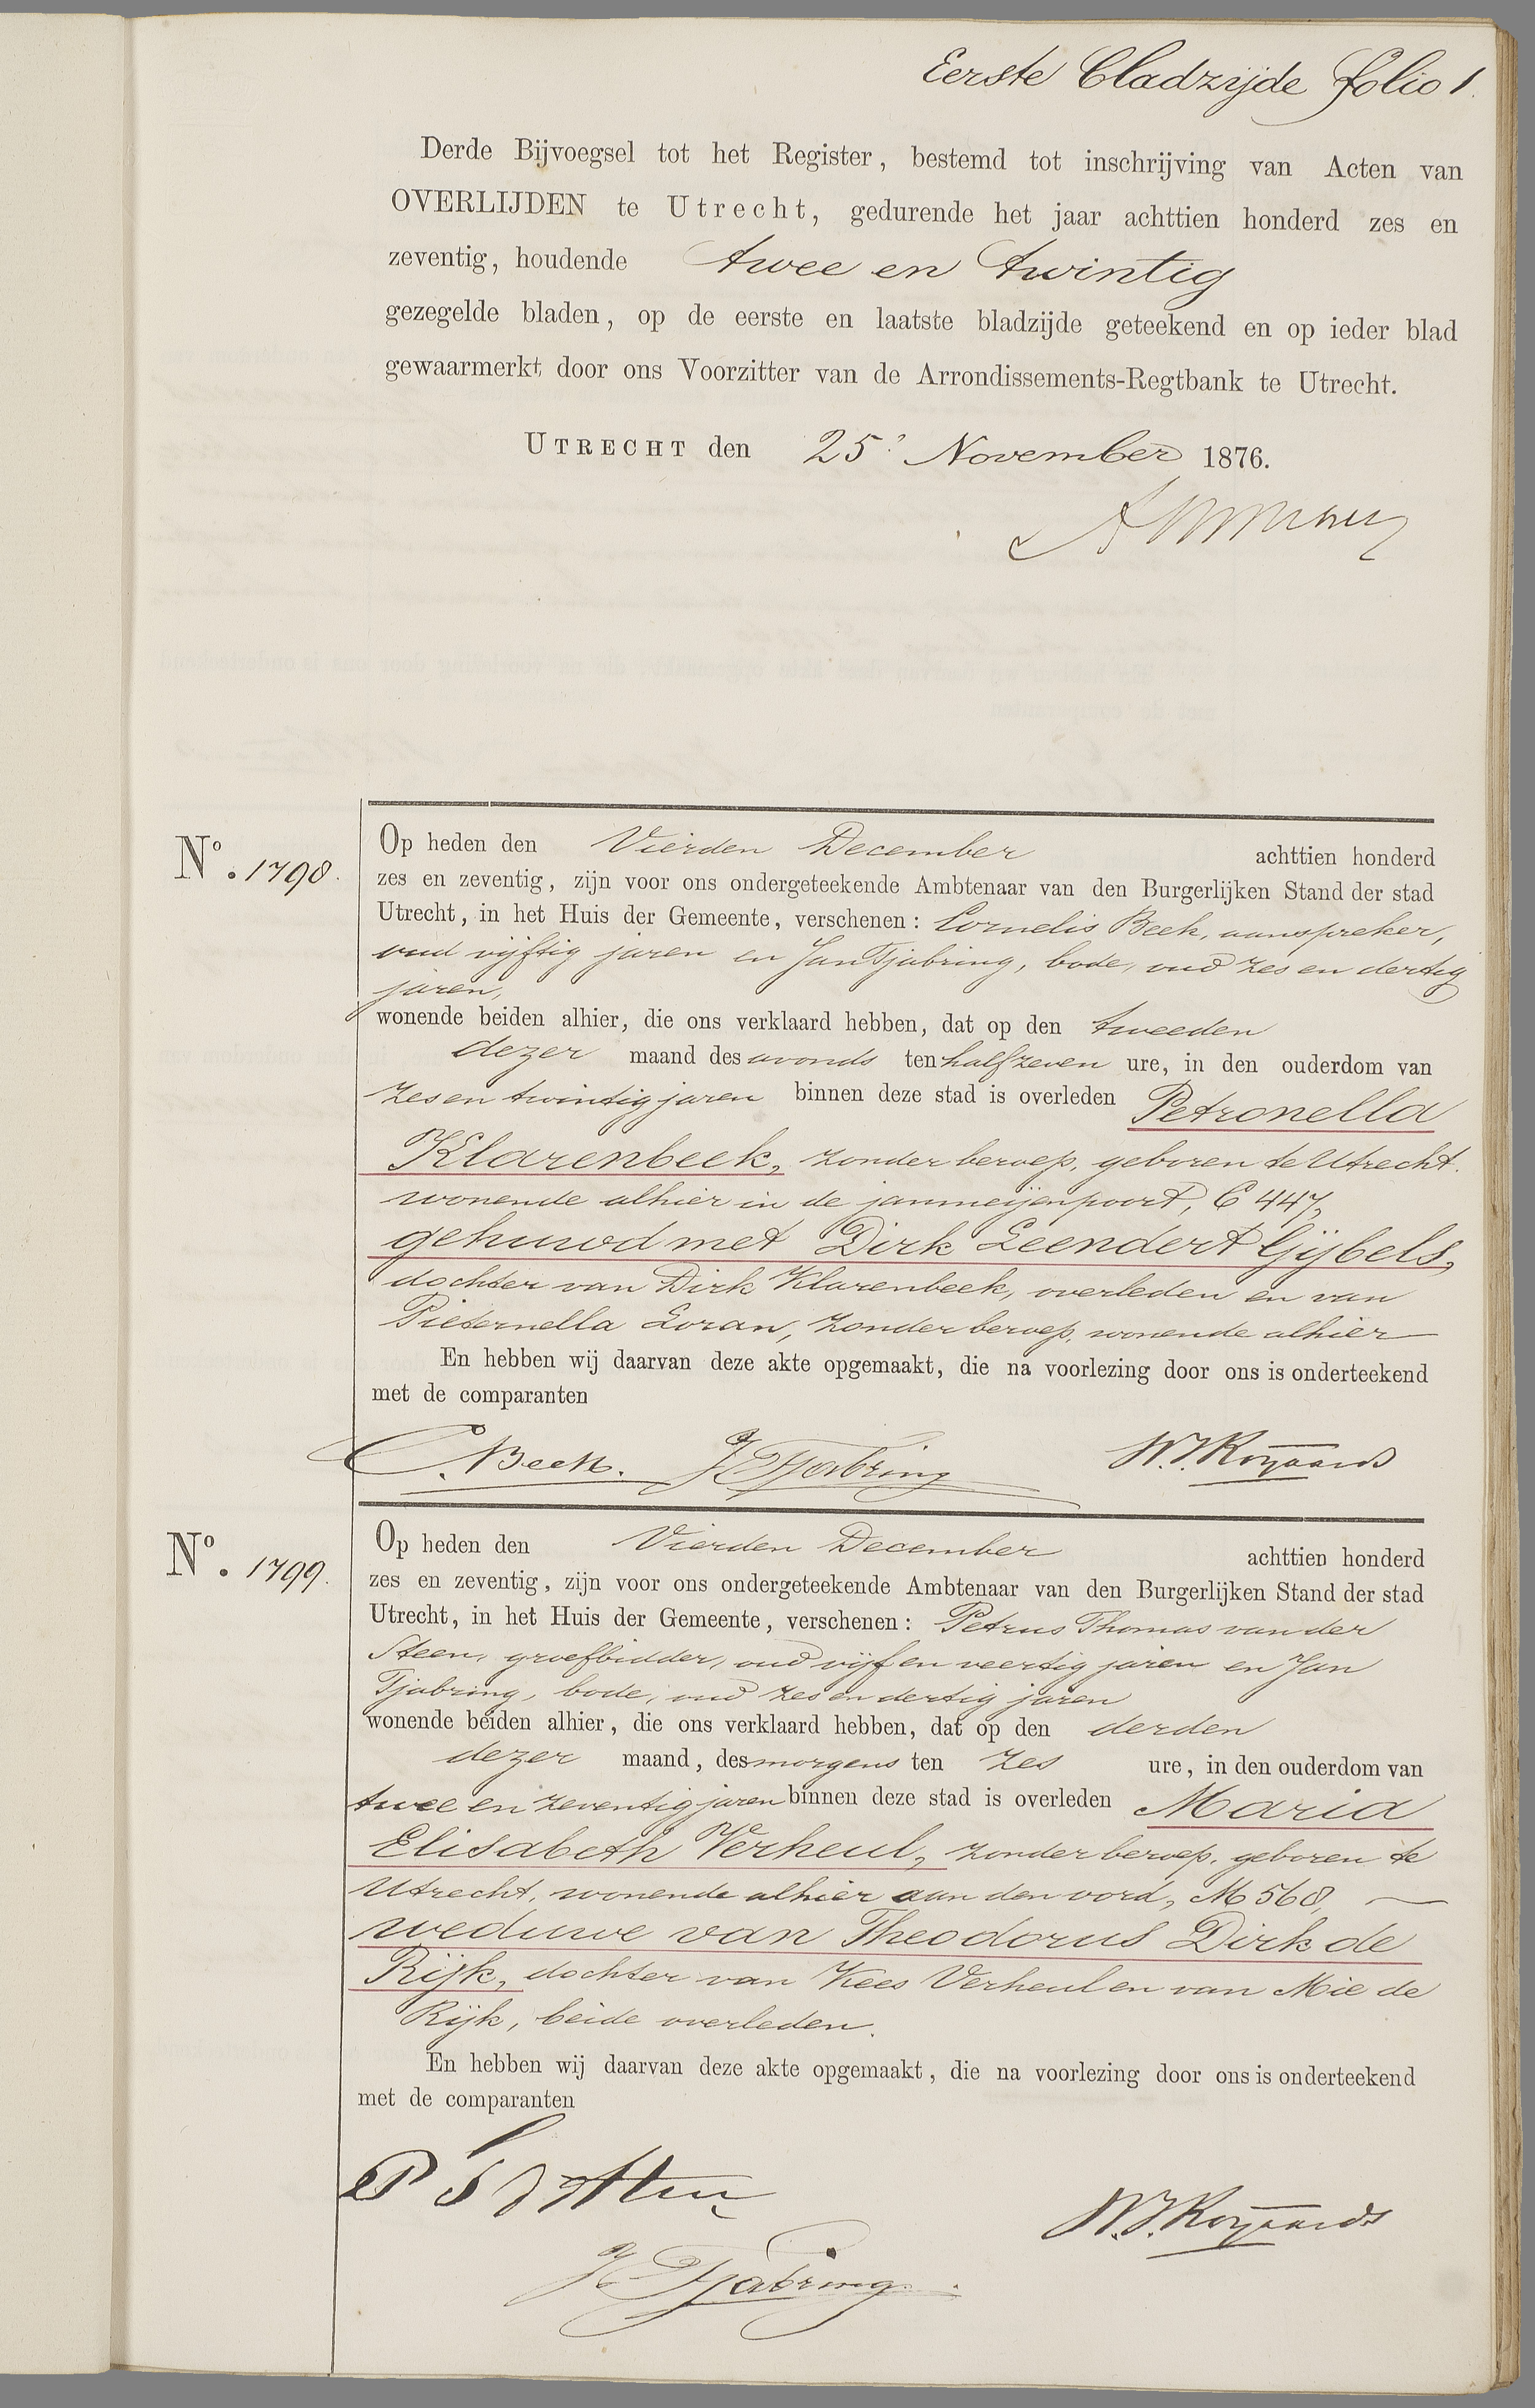 Eerste Bladzijde folio 1.
Derde Bijvoegsel tot het Register, bestemd tot inschrijving van Acten van
OVERLIJDEN te Utrecht, gedurende het jaar achttien honderd zes en
zeventig, houdende twee en twintig
gezegelde bladen, op de eerste en laatste bladzijde geteekend en op ieder blad
gewaarmerkt door ons Voorzitter van de Arrondissements-Regtbank te Utrecht.
UTRECHT den 25 November 1876.
No. 1798.
Op heden den Vierden December achttien honderd
zes en zeventig, zijn voor ons ondergeteekende Ambtenaar van den Burgerlijken Stand der stad
Utrecht, in het Huis der Gemeente, verschenen: Cornelis Beek, aanspreker,
oud vijftig jaren en Jan Tjabring, bode, oud zes en dertig
jaren,
wonende beiden alhier, die ons verklaard hebben, dat op den tweeden
dezer maand des avonds ten half zeven ure, in den ouderdom van
zes en twintig jaren binnen deze stad is overleden Petronella
Klarenbeek, zonder beroep, geboren te Utrecht.
wonende alhier in de janmeijenpoort, C 447,
gehuwd met Dirk Leendert Gijbels,
dochter van Dirk Klarenbeek, overleden en van
Pieternella Loran, zonder beroep, wonende alhier
En hebben wij daarvan deze akte opgemaakt, die na voorlezing door ons is onderteekend
met de comparanten
C. Beek. J Tjabring W.J. Royaards
No. 1799.
Op heden den Vierden December achttien honderd
zes en zeventig, zijn voor ons ondergeteekende Ambtenaar van den Burgerlijken Stand der stad
Utrecht, in het Huis der Gemeente, verschenen: Petrus Thomas van der
Steen, groefbidder, oud vijf en veertig jaren en Jan
Tjabring, bode, oud zes en dertig jaren
wonende beiden alhier, die ons verklaard hebben, dat op den derden
dezer maand, des morgens ten zes ure, in den ouderdom van
twee en zeventig jaren binnen deze stad is overleden Maria
Elisabeth Verheul, zonder beroep, geboren te
Utrecht, wonende alhier aan den oord, M 568,
weduwe van Theodorus Dirk de
Rijk, dochter van Kees Verheul en van Mie de
Rijk, beide overleden.
En hebben wij daarvan deze akte opgemaakt, die na voorlezing door ons is onderteekend
met de comparanten
W.J. Royaards
J Tjabring